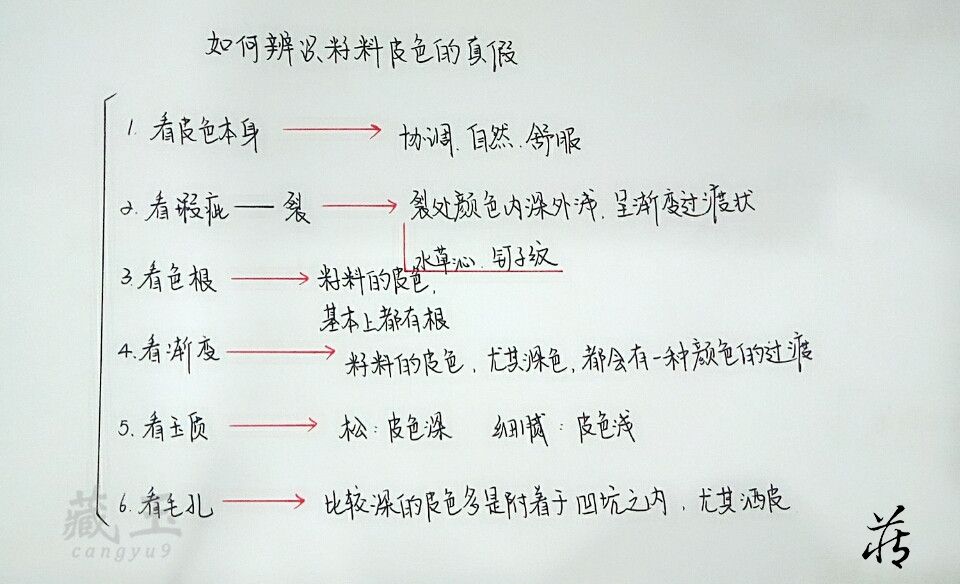 如何辨识籽料皮色的真假
1. 看皮色本身 → 协调.自然.舒服
2. 看瑕疵——裂 → 裂处颜色内深外浅,呈渐变过渡状
水草沁.钉子纹
3. 看色根 → 籽料的皮色,
基本上都有根
4. 看渐变 → 籽料的皮色,尤其深色,都会有一种颜色的过渡
5. 看玉质 → 松:皮色深 细腻:皮色浅
6. 看毛孔 → 比较深的皮色多是附着于凹坑之内,尤其洒皮
藏玉
cangyu9